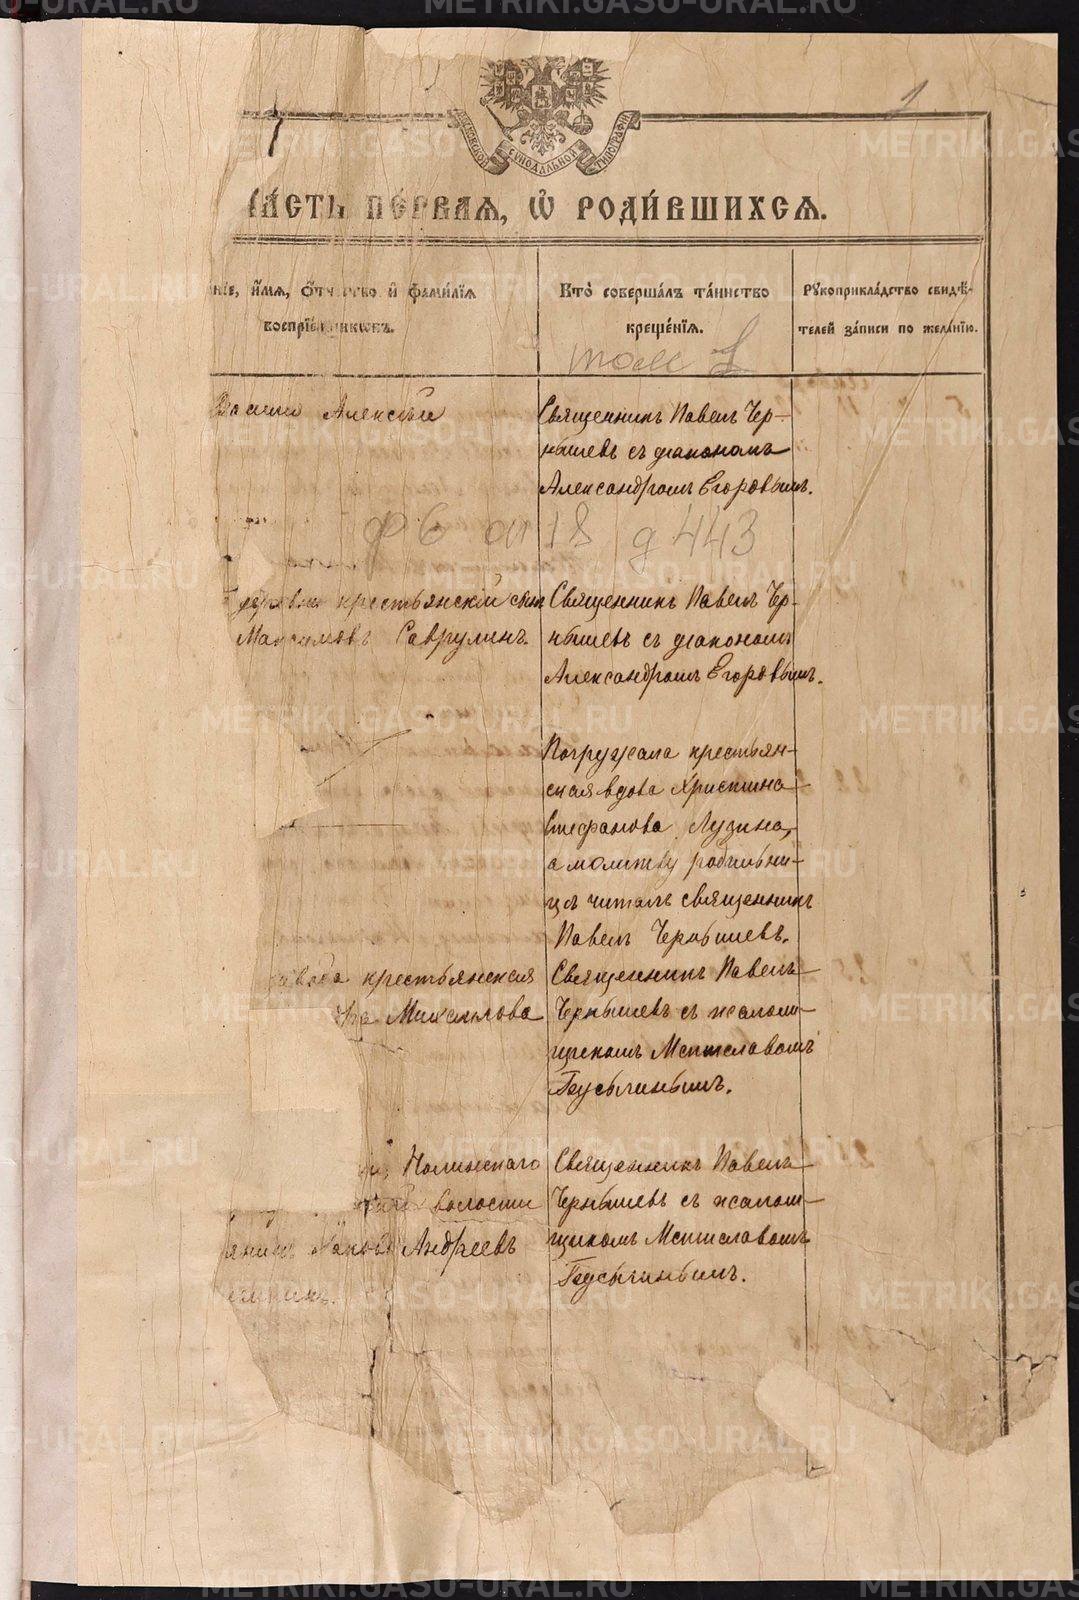 1
Московской Сѵнодальной Типографіи
Часть пе́рваѧ, ѽ роди́вшихсѧ.
ніе, и́мѧ, ѻ́тчество и фами́лїѧ
воспрїе́мникωвъ.
Кто̀ соверша́лъ та́инство
креще́нїѧ.
Рꙋкоприкла́дство свидѣ́-
телей за́писи по жела́нїю.
том 1
Василій Алексѣй
Священникъ Павелъ Чер-
нышевъ съ діакономъ
Александромъ Егоровымъ.
ф 6 оп 18 д 443
деревни крестьянскій сынъ
Максимовъ Саврулинъ.
Священникъ Павелъ Чер-
нышевъ съ діакономъ
Александромъ Егоровымъ.
Погружала крестьян-
ская вдова Христина
Стефанова Лузина,
а молитву родильни-
цѣ читалъ священникъ
Павелъ Чернышевъ.
завода крестьянская
Михайлова
Священникъ Павелъ
Чернышевъ съ псалом-
щикомъ Мстиславомъ
Гусынинымъ.
Нолинскаго
волости
янинъ Яковъ Андреевъ
Священникъ Павелъ
Чернышевъ съ псалом-
щикомъ Мстиславомъ
Гусынинымъ.
METRIKI.GASO-URAL.RU